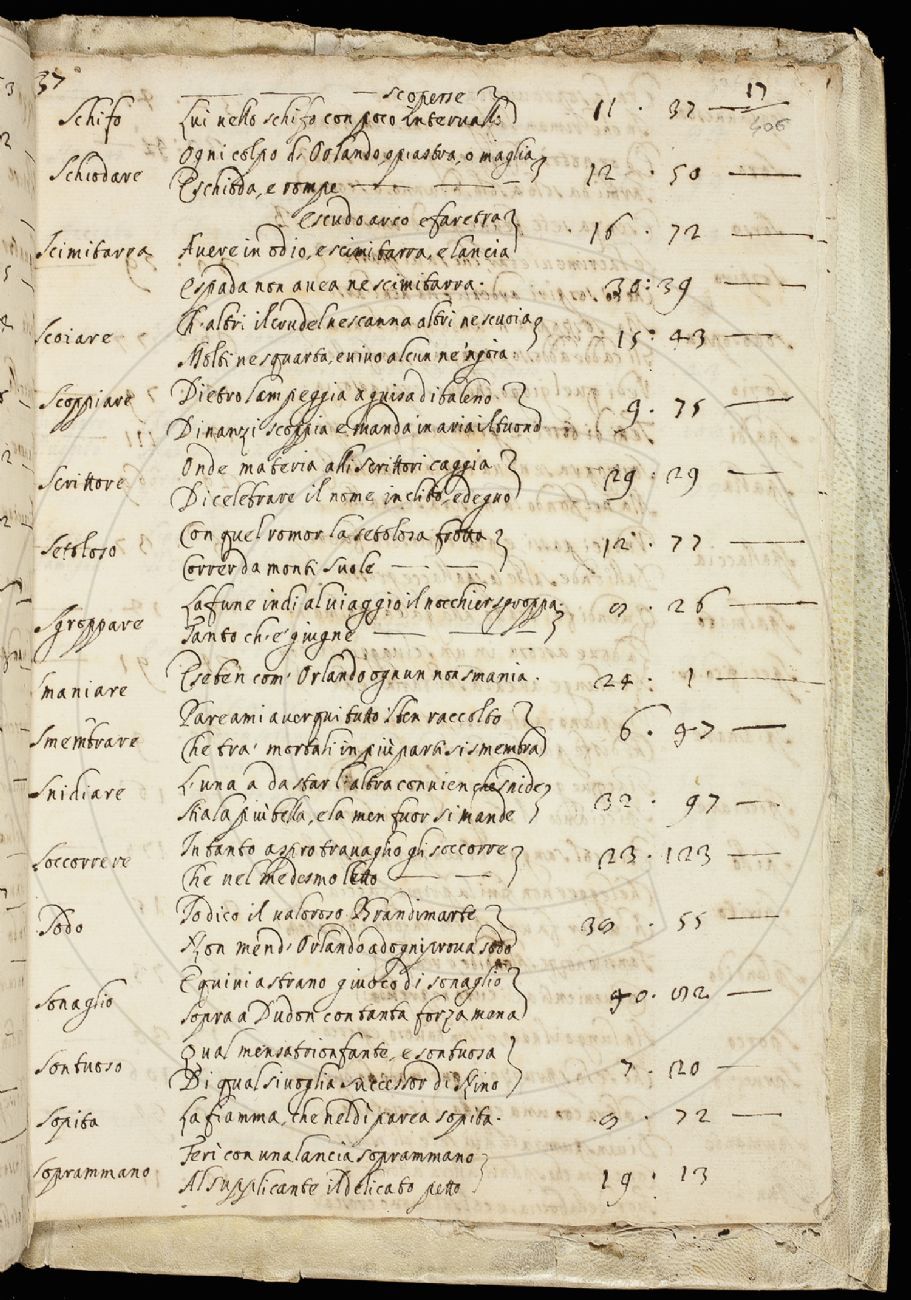 37
17
406
— — — scoperse
Schifo Lui nello schifo con poco interuallo 11 · 37 —
Ogni colpo di Orlando, o piastra, o maglia
Schiodare E schioda, e rompe — — — 12 · 50 —
e scudo arco e faretra
16 · 72 —
Scimitarra Avere in odio, e scimitarra, e lancia
e spada non avea ne scimitarra · 30 : 39 —
Ch' altri il crudel ne scanna altri ne scuoia
Scoiare 15 : 43 —
Molti ne squarta, e vivo alcun ne 'ngoia
Scoppiare Dietro lampeggia a guisa di baleno ·
9 · 75 —
Dinanzi scoppia e manda in aria il tuono
Onde materia alli scrittori caggia
Scrittore 29 · 29 —
Di celebrare il nome inclito, e degno
Con quel romor la setolosa frotta
Setoloso 12 · 77 —
Correr da monti suole — — —
La fune indi al viaggio il nocchier sgroppa
Sgroppare 9 · 26 —
Tanto ch' e' giugne — — —
E se ben com' Orlando ognun non smania ·
smaniare 24 : 1 —
Pareami aver qui tutto 'l ben raccolto
Smembrare 6 · 47 —
Che tra' mortali in più parti si smembra
L' una a da star l' altra convien che snide
Snidiare 32 · 97 —
Stia la più bella, e la men fuor si mande
Intanto aspro travaglio gli soccorre
Soccorrere 23 · 123 —
Che nel medesmo letto — —
Sodo Io dico il valoroso Brandimarte
30 · 55 —
Non men d' Orlando ad ogni prova sodo
E quivi a strano giuoco di sonaglio
Sonaglio 40 · 82 —
Sopra a Dudon con tanta forza mena
Qual mensa trionfante, e sontuosa
Sontuoso 7 · 20 —
Di qual si voglia successor di Nino
Sopita La fiamma, che nel dì parea sopita · 9 · 72 —
Ferì con una lancia soprammano
Soprammano 19 : 13
Al supplicante il delicato petto